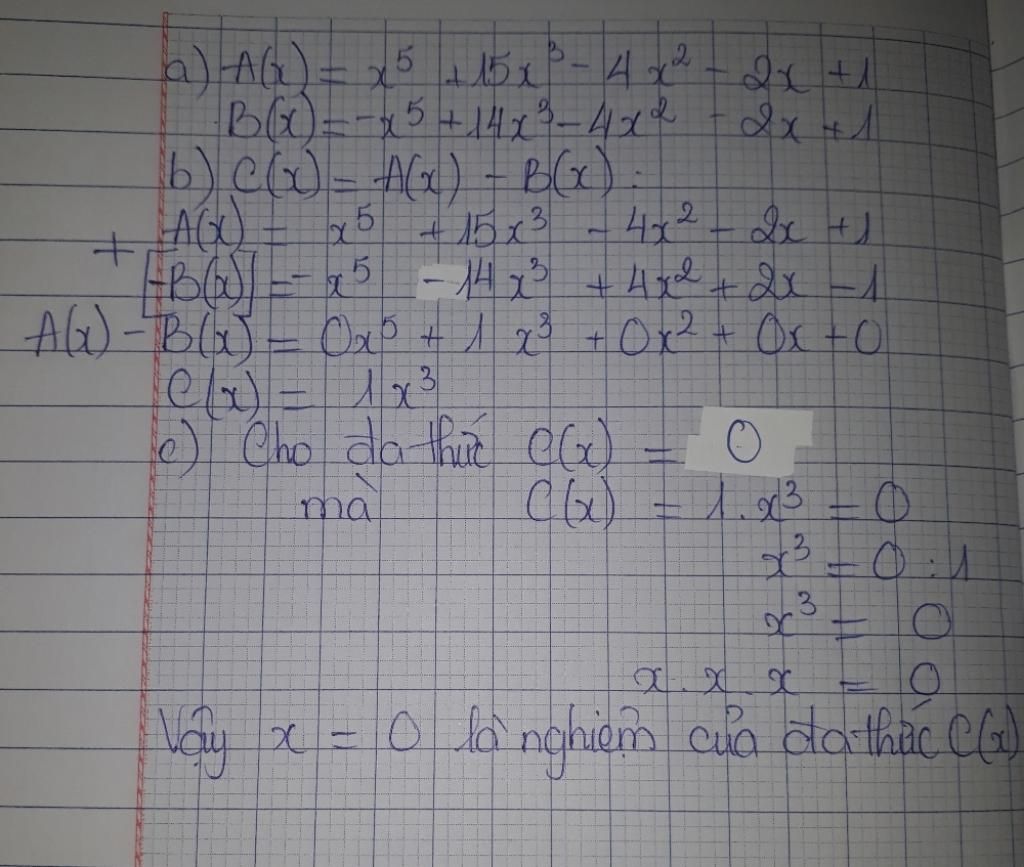 a) A(x) = x⁵ + 15x³ - 4x² - 2x + 1
B(x) = -x⁵ + 14x³ - 4x² - 2x + 1
b) C(x) = A(x) - B(x) :
A(x) = x⁵ + 15x³ - 4x² - 2x + 1
+ [-B(x)] = - x⁵ - 14x³ + 4x² + 2x - 1
A(x) - B(x) = 0x⁵ + 1x³ + 0x² + 0x + 0
C(x) = 1x³
c) Cho đa thức C(x) = 0
mà C(x) = 1.x³ = 0
x³ = 0 : 1
x³ = 0
x . x . x = 0
Vậy x = 0 là nghiệm của đa thức C(x)